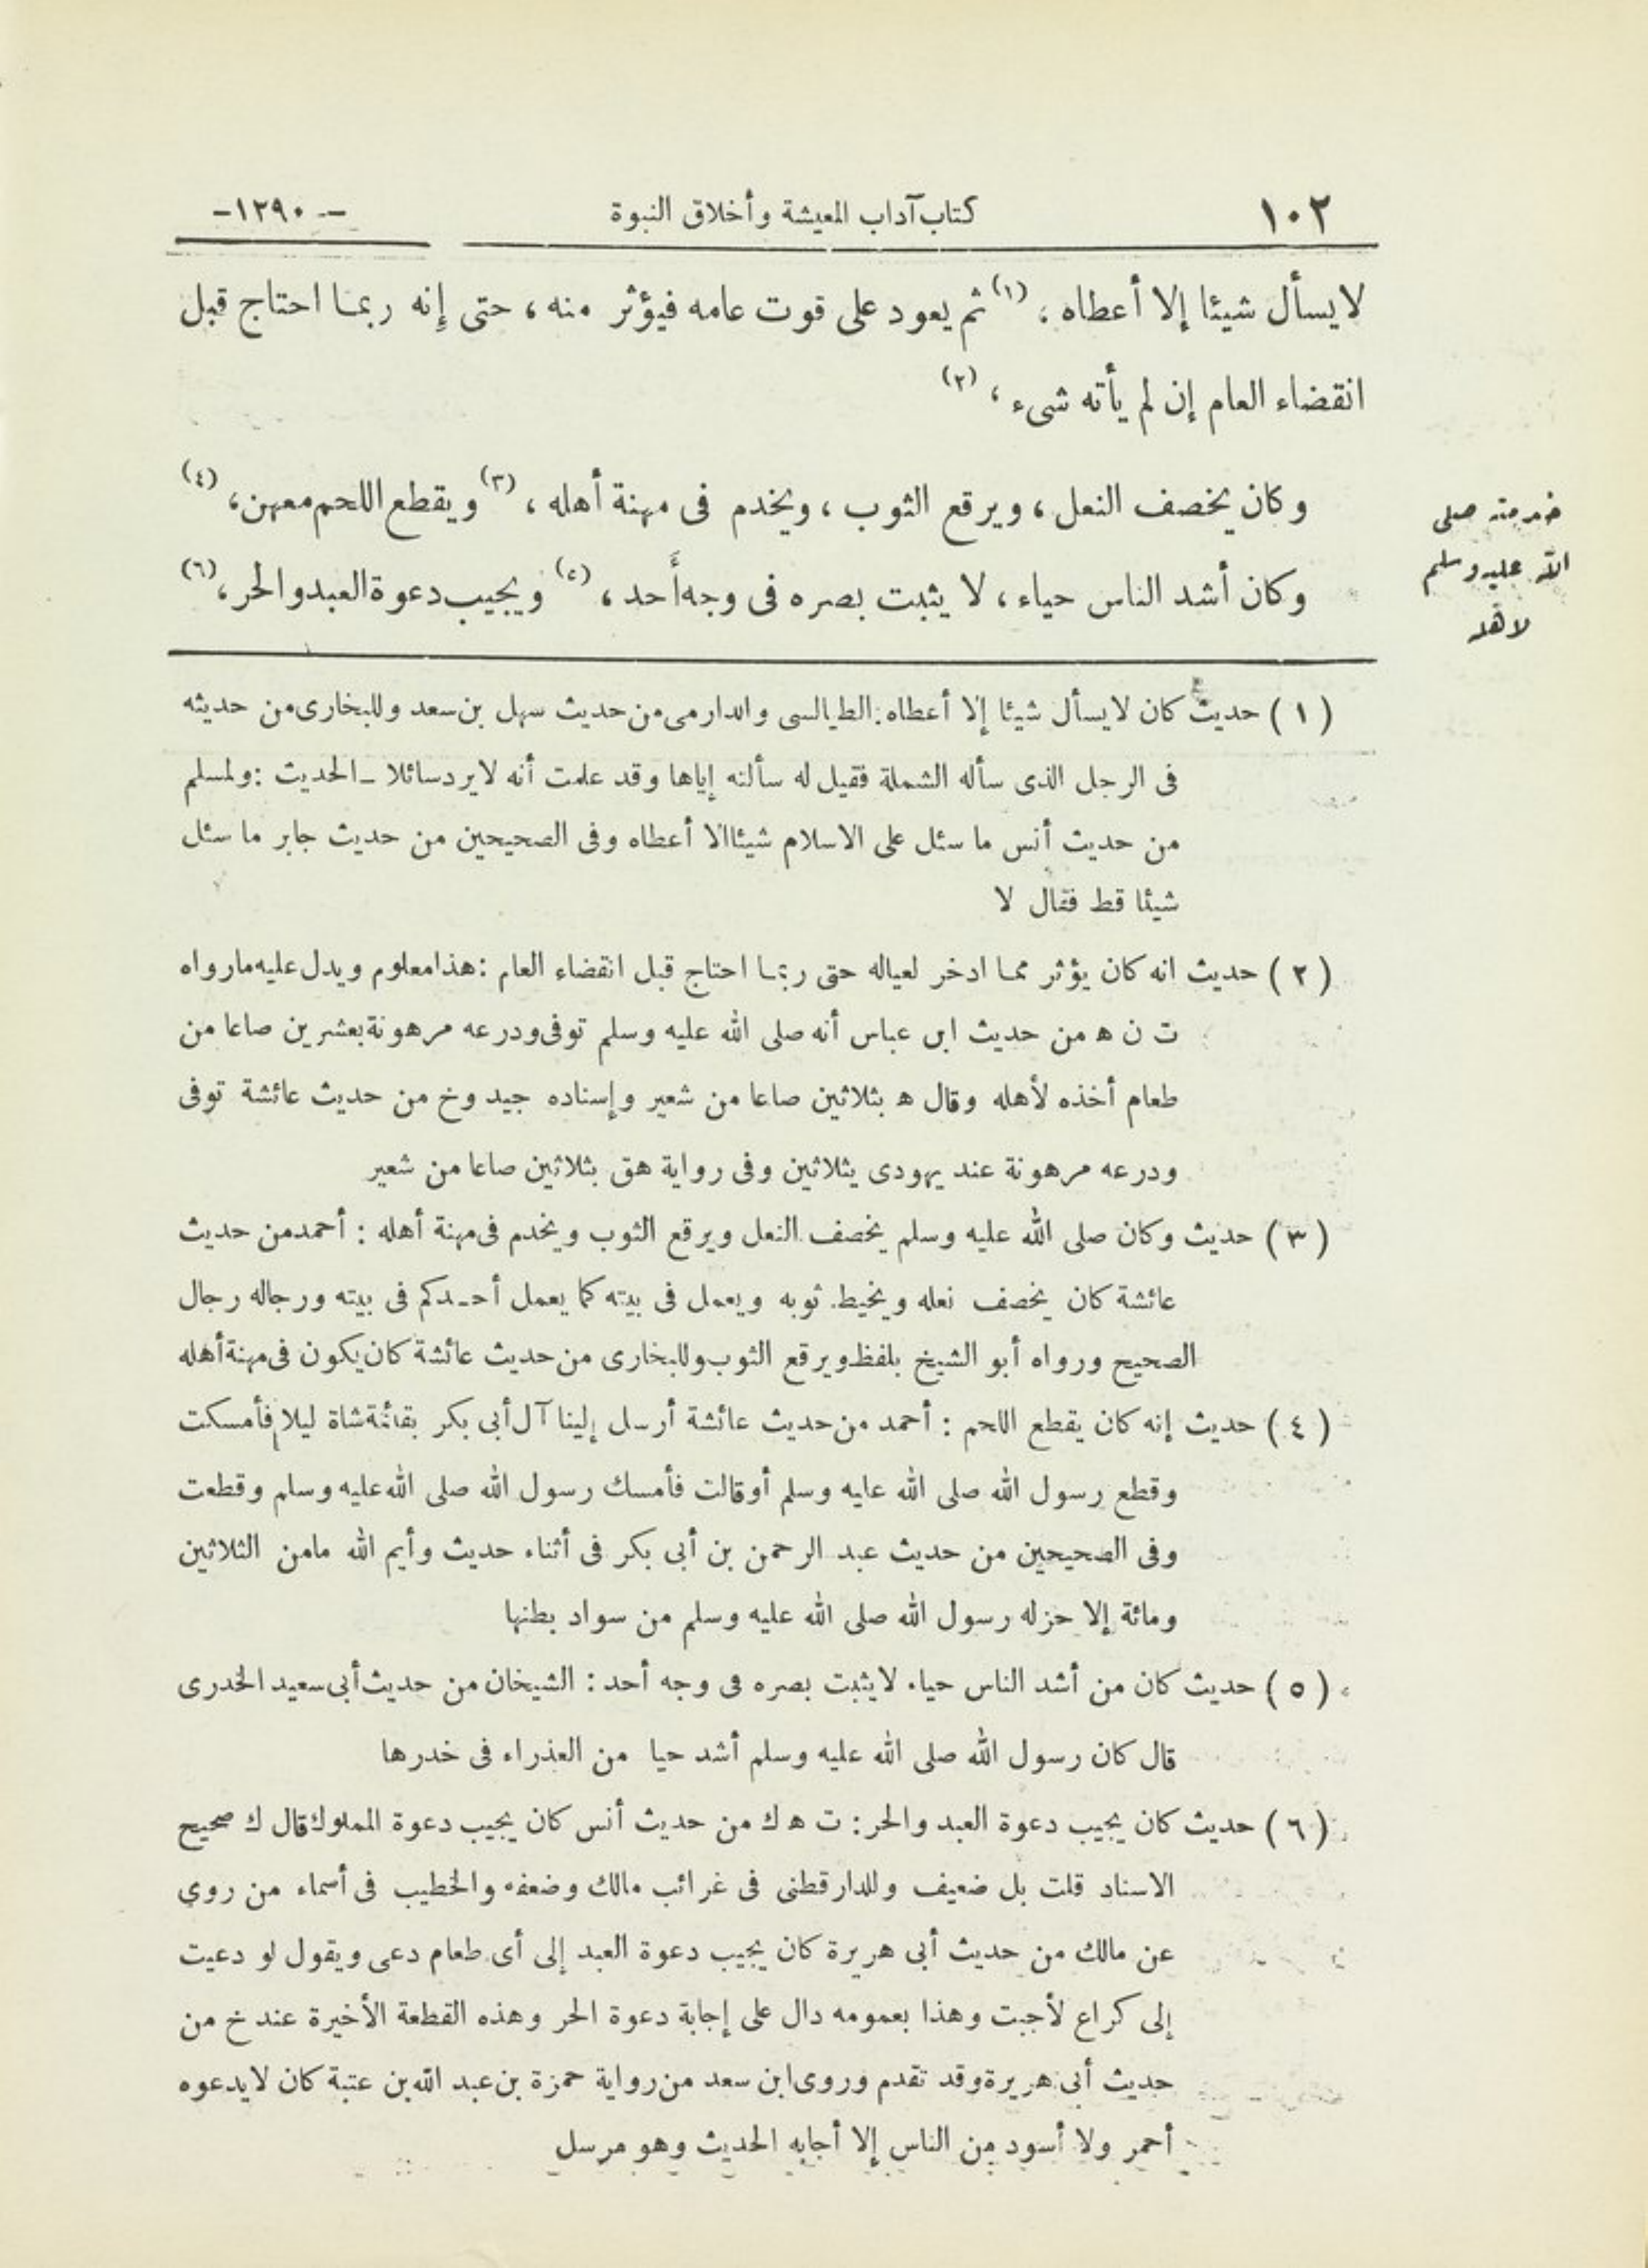 ١٠٢ كتاب آداب المعيشة وأخلاق النبوة - ١٢٩٠ -
لايسأل شيئا إلا أعطاه ، (١) ثم يعود على قوت عامه فيؤثر منه ، حتى إنه ربما احتاج قبل
انقضاء العام إن لم يأته شىء ، (٢)
وكان يخصف النعل ، ويرقع الثوب ، ويخدم فى مهنة أهله ، (٣) ويقطع اللحم معهن ، (٤)
وكان أشد الناس حياء ، لا يثبت بصره فى وجه أحد ، (٥) ويجيب دعوة العبد والحر ، (٦)
خدمته صلى
الله عليه وسلم
لأهله
( ١ ) حديث كان لايسأل شيئا إلا أعطاه : الطيالسى والدارمى من حديث سهل بن سعد وللبخارى من حديثه
فى الرجل الذى سأله الشملة فقيل له سألته إياها وقد علمت أنه لايرد سائلا ـ الحديث : ولمسلم
من حديث أنس ما سئل على الاسلام شيئا الا أعطاه وفى الصحيحين من حديث جابر ما سئل
شيئا قط فقال لا
( ٢ ) حديث انه كان يؤثر مما ادخر لعياله حتى ربما احتاج قبل انقضاء العام : هذا معلوم ويدل عليه مارواه
ت ن ه من حديث ابن عباس أنه صلى الله عليه وسلم توفى ودرعه مرهونة بعشرين صاعا من
طعام أخذه لأهله وقال ه بثلاثين صاعا من شعير وإسناده جيد وخ من حديث عائشة توفى
ودرعه مرهونة عند يهودى بثلاثين وفى رواية هق بثلاثين صاعا من شعير
( ٣ ) حديث وكان صلى الله عليه وسلم يخصف النعل ويرقع الثوب ويخدم فى مهنة أهله : أحمد من حديث
عائشة كان يخصف نعله ويخيط ثوبه ويعمل فى بيته كما يعمل أحدكم فى بيته ورجاله رجال
الصحيح ورواه أبو الشيخ بلفظ ويرقع الثوب وللبخارى من حديث عائشة كان يكون فى مهنة أهله
( ٤ ) حديث إنه كان يقطع اللحم : أحمد من حديث عائشة أرسل إلينا آل أبى بكر بقائمة شاة ليلا فأمسكت
وقطع رسول الله صلى الله عليه وسلم أوقالت فأمسك رسول الله صلى الله عليه وسلم وقطعت
وفى الصحيحين من حديث عبد الرحمن بن أبى بكر فى أثناء حديث وأيم الله مامن الثلاثين
ومائة إلا حزله رسول الله صلى الله عليه وسلم من سواد بطنها
( ٥ ) حديث كان من أشد الناس حياء لايثبت بصره فى وجه أحد : الشيخان من حديث أبى سعيد الخدرى
قال كان رسول الله صلى الله عليه وسلم أشد حيا من العذراء فى خدرها
( ٦ ) حديث كان يجيب دعوة العبد والحر : ت ه ك من حديث أنس كان يجيب دعوة المملوك قال ك صحيح
الاسناد قلت بل ضعيف وللدارقطنى فى غرائب مالك وضعفه والخطيب فى أسماء من روى
عن مالك من حديث أبى هريرة كان يجيب دعوة العبد إلى أى طعام دعى ويقول لو دعيت
إلى كراع لأجبت وهذا بعمومه دال على إجابة دعوة الحر وهذه القطعة الأخيرة عند خ من
حديث أبى هريرة وقد تقدم وروى ابن سعد من رواية حمزة بن عبد الله بن عتبة كان لايدعوه
أحمر ولا أسود من الناس إلا أجابه الحديث وهو مرسل